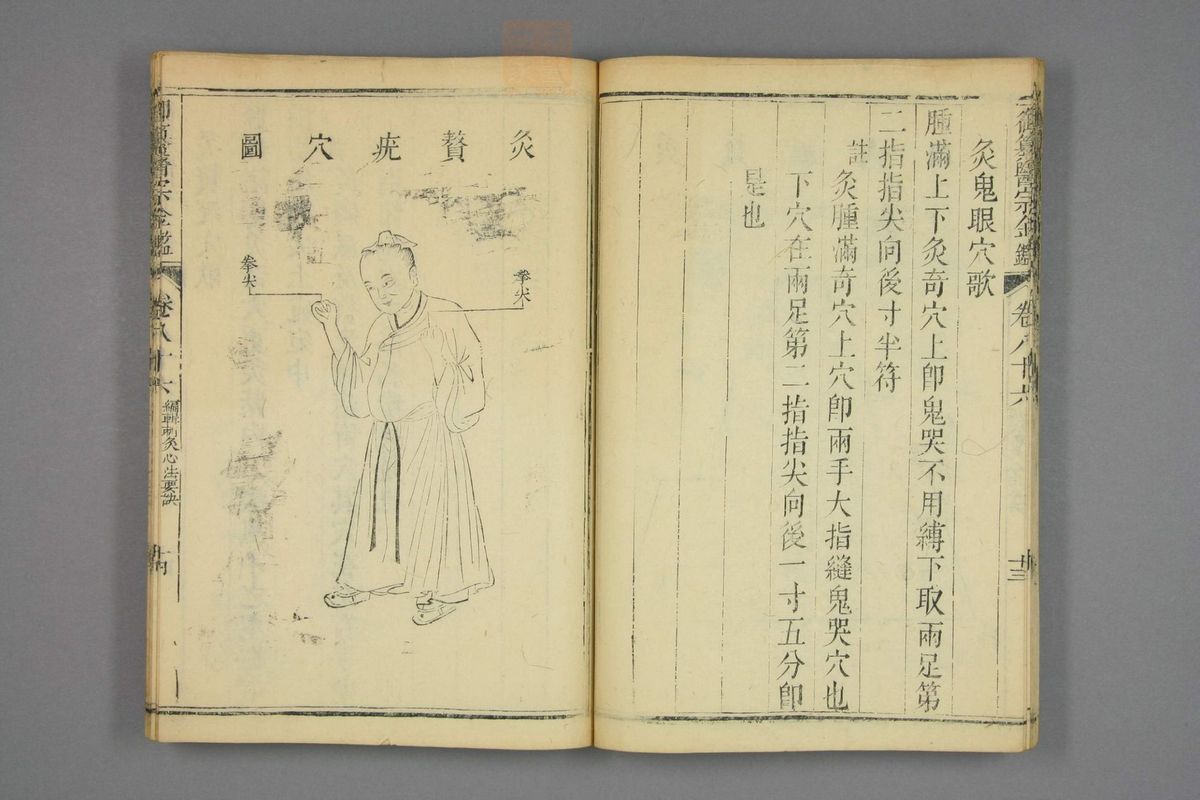 灸鬼眼穴歌
腫滿上下灸奇穴上卽鬼哭不用縛下取兩足第
二指指尖向後寸半符
註
灸腫滿奇穴上穴卽兩手大指縫鬼哭穴也
下穴在兩足第二指指尖向後一寸五分卽
是也
醫宗金鑑
卷八十六
十三
灸贅疣穴圖
拳尖
拳尖
醫宗金鑑
卷八十六
編輯刺灸心法要訣
十四